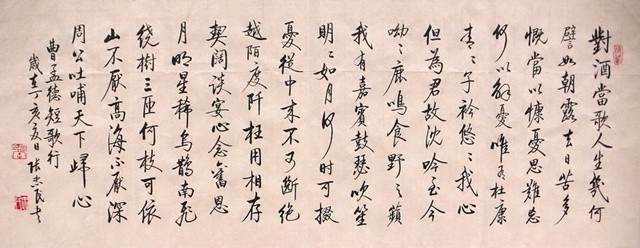 對酒當歌人生幾何
譬如朝露去日苦多
慨當以慷憂思難忘
何以解憂唯有杜康
青〻子衿悠〻我心
但為君故沈吟至今
呦〻鹿鳴食野之蘋
我有嘉賓鼓瑟吹笙
明〻如月何時可掇
憂從中來不可斷絕
越陌度阡枉用相存
契闊談宴心念舊恩
月明星稀烏鵲南飛
繞樹三匝何枝可依
山不厭高海不厭深
周公吐哺天下歸心
曹孟德短歌行
歲在丁亥夏日